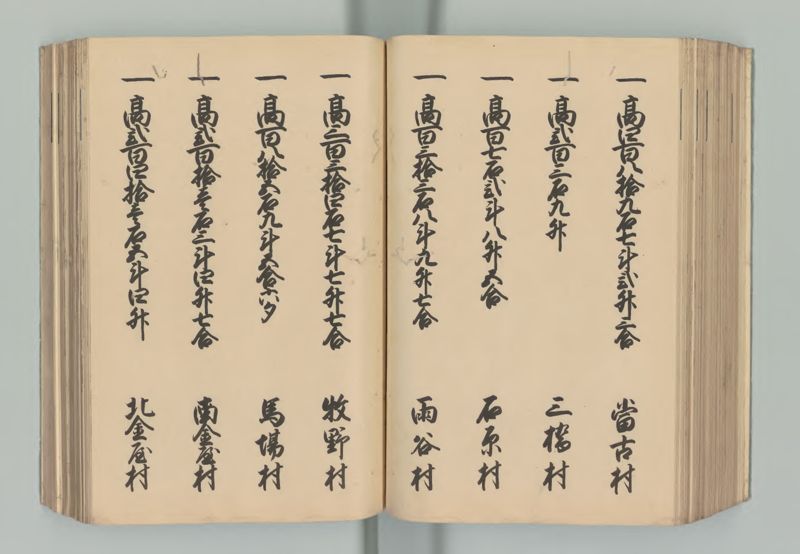 一高四百八拾九石七斗弐升二合 當古村
一高弐百三石九升 三橋村
一高百七石弐斗八升五合 石原村
一高百三拾三石八斗九升七合 雨谷村
一高三百三拾四石七斗七升七合 牧野村
一高百八拾五石九斗五合六夕 馬場村
一高弐百拾壱石三斗四升七合 南金屋村
一高弐百四拾壱石五斗四升 北金屋村